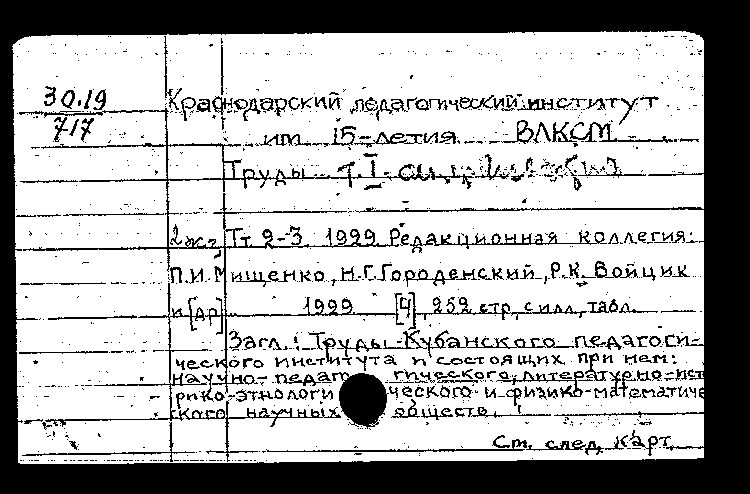 30.19
717
Краснодарский педагогический институт
им 15-летия ВЛКСМ
Труды т. I-
2жг. Тт 2-3 1929. Редакционная коллегия:
П.И.Мищенко, Н.Г.Городенский, Р.К. Войцик
и [др] 1929 [4], 252 стр, с илл, табл.
Загл.: Труды Кубанского педагоги-
ческого института и состоящих при нем:
научно-педагогического, литературно-ист
рико-этнологического и физико-математиче
ского научных обществ.
См. след. карт.